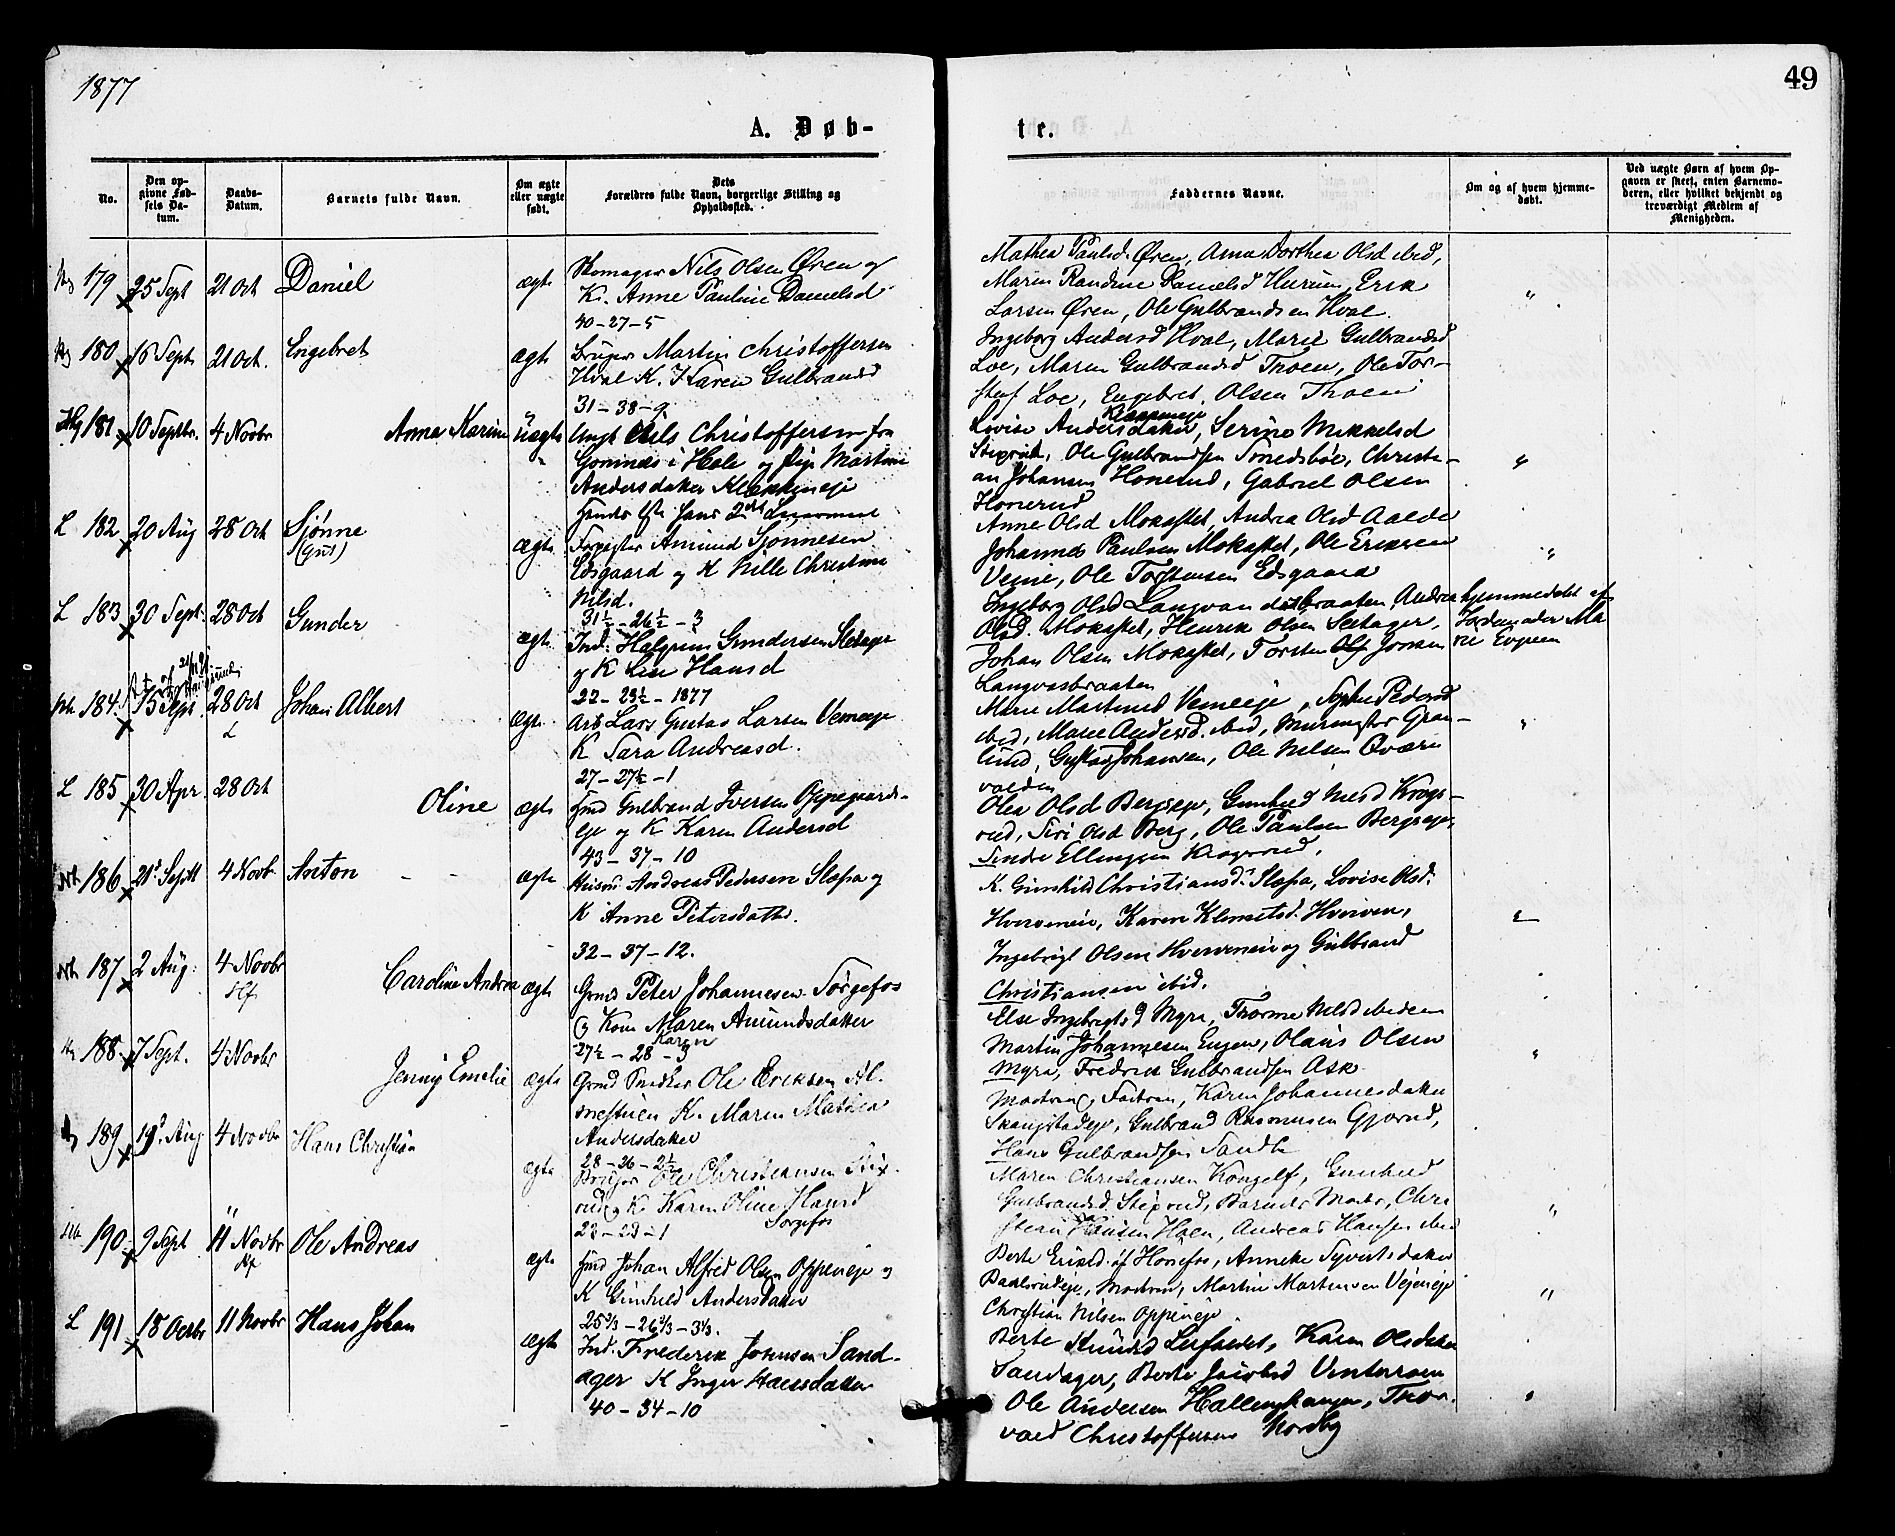 1877
49
A. Døb-
te.
No.
Den op-
givne Fød-
sels Da-
tum.
Daabs-
Datum.
Barnets fulde Navn.
Om ægte
eller uægte
født.
Dets
Forældres fulde Navn, borgerlige Stilling og
Opholdssted.
Faddernes Navne.
Om og af hvem hjemme-
døbt.
Ved uægte Børn af hvem Op-
gaven er skeet, enten Barnemo-
deren, eller hvilket bekjendt og
troværdigt Medlem af
Menigheden.
179 25 Sept 21 Oct Daniel ægte
Skomager Nils Olsen Øren og
K. Anne Pauline Danielsd
40-27-5
Mathea Paulsd. Øren, Anna Dorthea Olsd ibid,
Maren Randine Danielsd Hurum, Erik
Larsen Øren, Ole Gulbrandsen Hval.
180 16 Sept 21 Oct. Engebret ægte
Bruger Martin Christoffersen
Hval K. Karen Gulbrandsd
31-38-9
Ingeborg Andersd Hval, Marie Gulbrandsd
Loe, Maren Gulbrandsd Thoen, Ole Tor-
stens Loe, Engebret Olsen Thoen
181 10 Septbr. 4 Novbr Anna Karine uægte
Ungk Nils Christoffersen fra
i Hole og Pige Martine
Andersdatter Klækkeneje
Lovise Andersdatter, Serine Mikkelsd
Stixrud, Ole Gulbrandsen Smedsbøe, Christi-
an Johansen Honerud, Gabriel Olsen
Honerud
L 182 20 Aug 28 Oct Sjønne
(Gut)
ægte
Forpagter Amund Sjonnesen
Edsgaard og K Nille Christine
Nilsd.
31½-26½-3
Anne Olsd Mokastet, Andrea Olsd
Johannes Paulsen Mokastet, Ole Eriksen
Veme, Ole Torstensen Edsgaard
L 183 30 Sept. 28 Oct Gunder ægte
Ind. Halgrim Gundersen Setager
og K Lise Hansd
22-23½-1877
Ingeborg Olsd Langvandsbraaten, Andrea
Olsd. Mokastet, Henrik Olsen Setager,
Johan Olsen Mokastet, Torsten Jonsen
Langvasbraaten
hjemmedøbt af
Jordemoder Ma-
rie Evjeen
184 15 Sept. 28 Oct Johan Albert ægte
L
Arb Lars Gustav Larsen Vemeeje
K Sara Andreasd.
27-27½-1
Marie Martinsd Vemeeje, Sophie Pedersd
ibid, Marie Andersd. ibid, Murmester Gran-
lund, Gustav Johansen, Ole Nilsen Qværn
volden
L 185 30 Apr. 28 Oct Oline ægte
Hmd Gulbrand Iversen Oppegaards-
eje og K Karen Andersd
43-37-10
Olea Olsd Bergseje, Gunhild Nilsd Krogs-
rud, Siri Olsd Berg, Ole Paulsen Bergseje,
Sindre Ellingsen Krogsrud.
186 21 Sept 4 Novb. Anton ægte
Husm. Andreas Pedersen Slapa og
K Anne Petersdatter.
32-37-12.
K. Gunhild Christiansd. Slapa, Lovise Olsd.
Hverveneie, Karen Klemetsd. Hverven,
Ingebrigt Olsen Hvervenei og Gulbrand
Christiansen ibid.
187 2 Aug. 4 Novbr Caroline Andrea ægte
Hf.
Grmd Peter Johannesen Sørgefos
og Kone Maren Amundsdatter
Karen
27½-28-3
Else Ingebrigtsd Myra, Thorine Nilsd ibidem
Martin Johannesen Eugen, Olaus Olsen
Myra, Fredrik Gulbrandsen Ask
188 7 Sept. 4 Novbr Jenny Emelie ægte
Grmd Snedker Ole Eriksen Al-
mestuen K. Maren Mathea
Andersdatter
28-26-2½
Modren og Fadren, Karen Johannesdatter
Gulbrand Rasmussen Gjørud,
Hans Gulbrandsen Sandb.
189 19 Aug 4 Novbr Hans Christian ægte
Bruger Ole Christiansen Stix-
rud og K. Karen Oline Hansd
23-23-1
Sorgefos
Maren Christiansen Kongelf, Gunhild
Gulbrandsd. Stixrud, Barnets Moder, Chri
stian Hansen Hoen, Andreas Hansen ibid
190 9 Sept 11 Novbr Ole Andreas ægte
Hf
Hmd Johan Alfred Olsen Oppeneje og
K Gunhild Andersdatter
25⅔-26⅔-3⅓.
Berte Eriksd. af Hønefos, Anneke Syvertsdatter
Modren, Martin Martinsen Vejeneje
Christian Nilsen Oppeneje.
L 191 18 Octbr 11 Novbr Hans Johan ægte
Ind. Frederik Josensen Sand-
ager K Inger Hansdatter
40-34-10
Berte Knudsd, Karen Olsdatter
Sandager, Berte Jacobsd Vinterroen
Ole Andersen Hallingshaugen, Thor-
vald Christoffersen Nordby